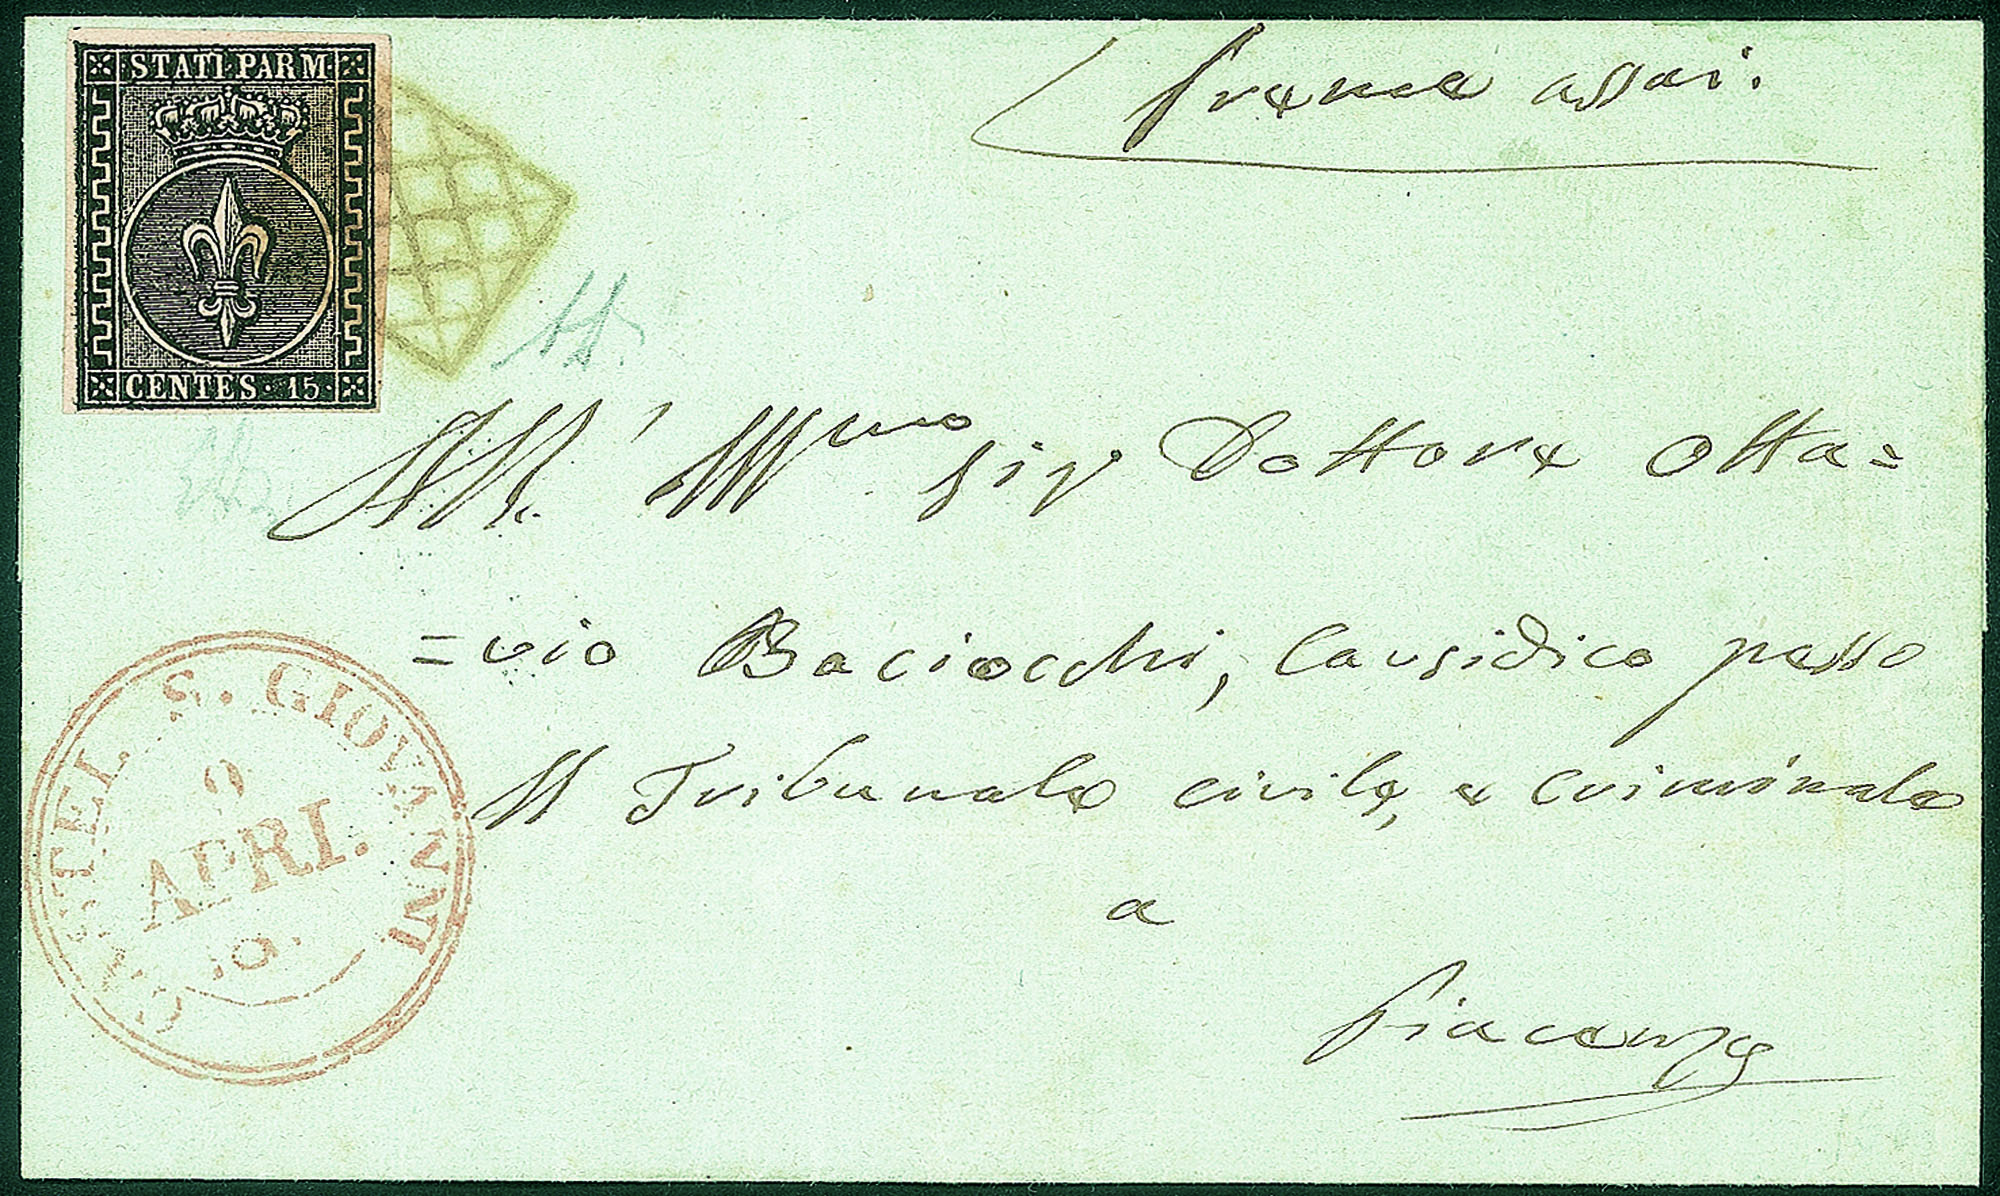 STATI PARM.
CENTES. 15.
preme assai.
All' Ill.mo Sig.r Dottore Otta=
=vio Baciocchi, Causidico presso
il Tribunale civile, e criminale
a
Piacenza
CASTEL S. GIOVANNI
9
APRI.